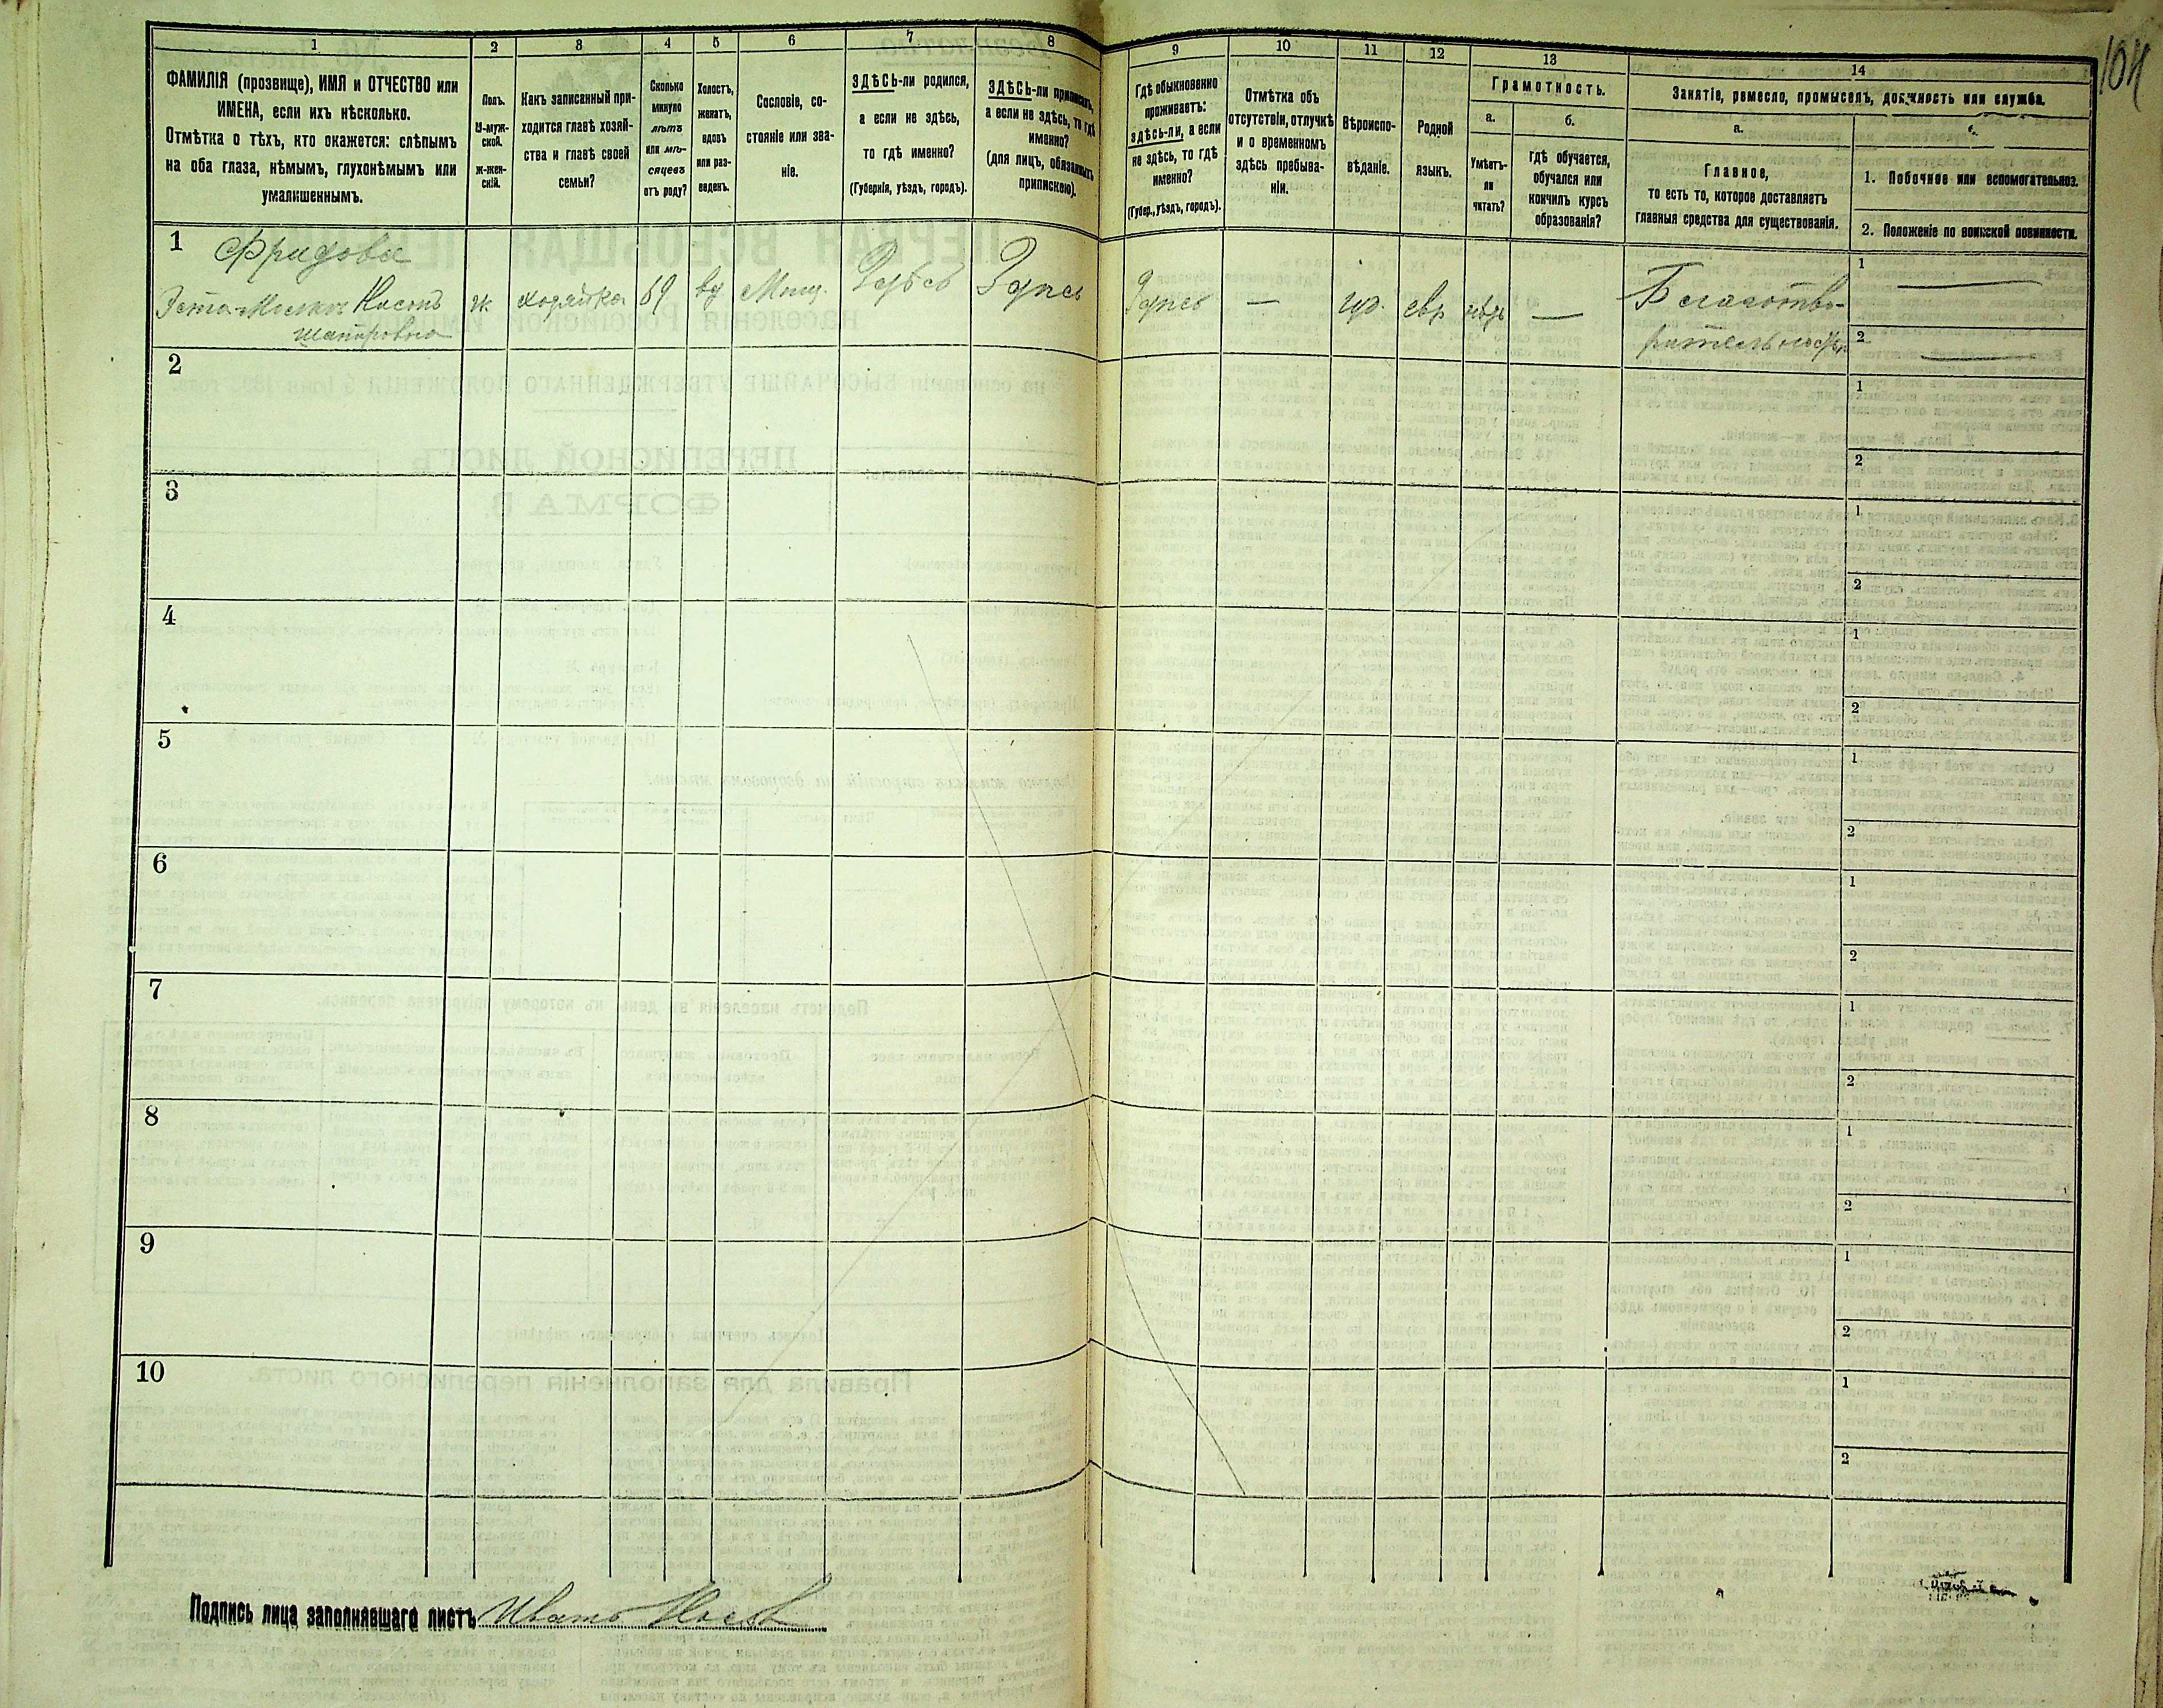 104
1 2 3 4 5 6 7 8 9 10 11 12 13 14
ФАМИЛІЯ (прозвище), ИМЯ и ОТЧЕСТВО или
ИМЕНА, если ихъ нѣсколько.
Отмѣтка о тѣхъ, кто окажется: слѣпымъ
на оба глаза, нѣмымъ, глухонѣмымъ или
умалишеннымъ.
Полъ.
М-муж-
ской.
ж-жен-
скій.
Какъ записанный при-
ходится главѣ хозяй-
ства и главѣ своей
семьи?
Сколько
минуло
лѣтъ
или мѣ-
сяцевъ
отъ роду?
Холостъ,
женатъ,
вдовъ
или раз-
веденъ.
Сословіе, со-
стояніе или зва-
ніе.
ЗДѢСЬ-ли родился,
а если не здѣсь,
то гдѣ именно?
(Губернія, уѣздъ, городъ).
ЗДѢСЬ-ли приписанъ,
а если не здѣсь, то гдѣ
именно?
(для лицъ, обязанныхъ
припискою).
Гдѣ обыкновенно
проживаетъ:
здѣсь-ли, а если
не здѣсь, то гдѣ
именно?
(Губер., уѣздъ, городъ).
Отмѣтка объ
отсутствіи, отлучкѣ
и о временномъ
здѣсь пребыва-
ніи.
Вѣроиспо-
вѣданіе.
Родной
языкъ.
Грамотность.
а.
Умѣетъ-
ли
читать?
б.
гдѣ обучается,
обучался или
кончилъ курсъ
образованія?
Занятіе, ремесло, промыселъ, должность или служба.
а.
Главное,
то есть то, которое доставляетъ
главныя средства для существованія.
б.
1. Побочное или вспомогательное.
2. Положеніе по воинской повинности.
1
Фридова
Шапировна
ж. хозяйка 69 вд Мѣщ. Здѣсь Здѣсь Здѣсь — іуд. евр нѣтъ —
Благотво-
рительность
1 —
2 —
2
1
2
3
1
2
4
1
2
5
1
2
6
1
2
7
1
2
8
1
2
9
1
2
10
1
2
Подпись лица заполнявшаго листъ